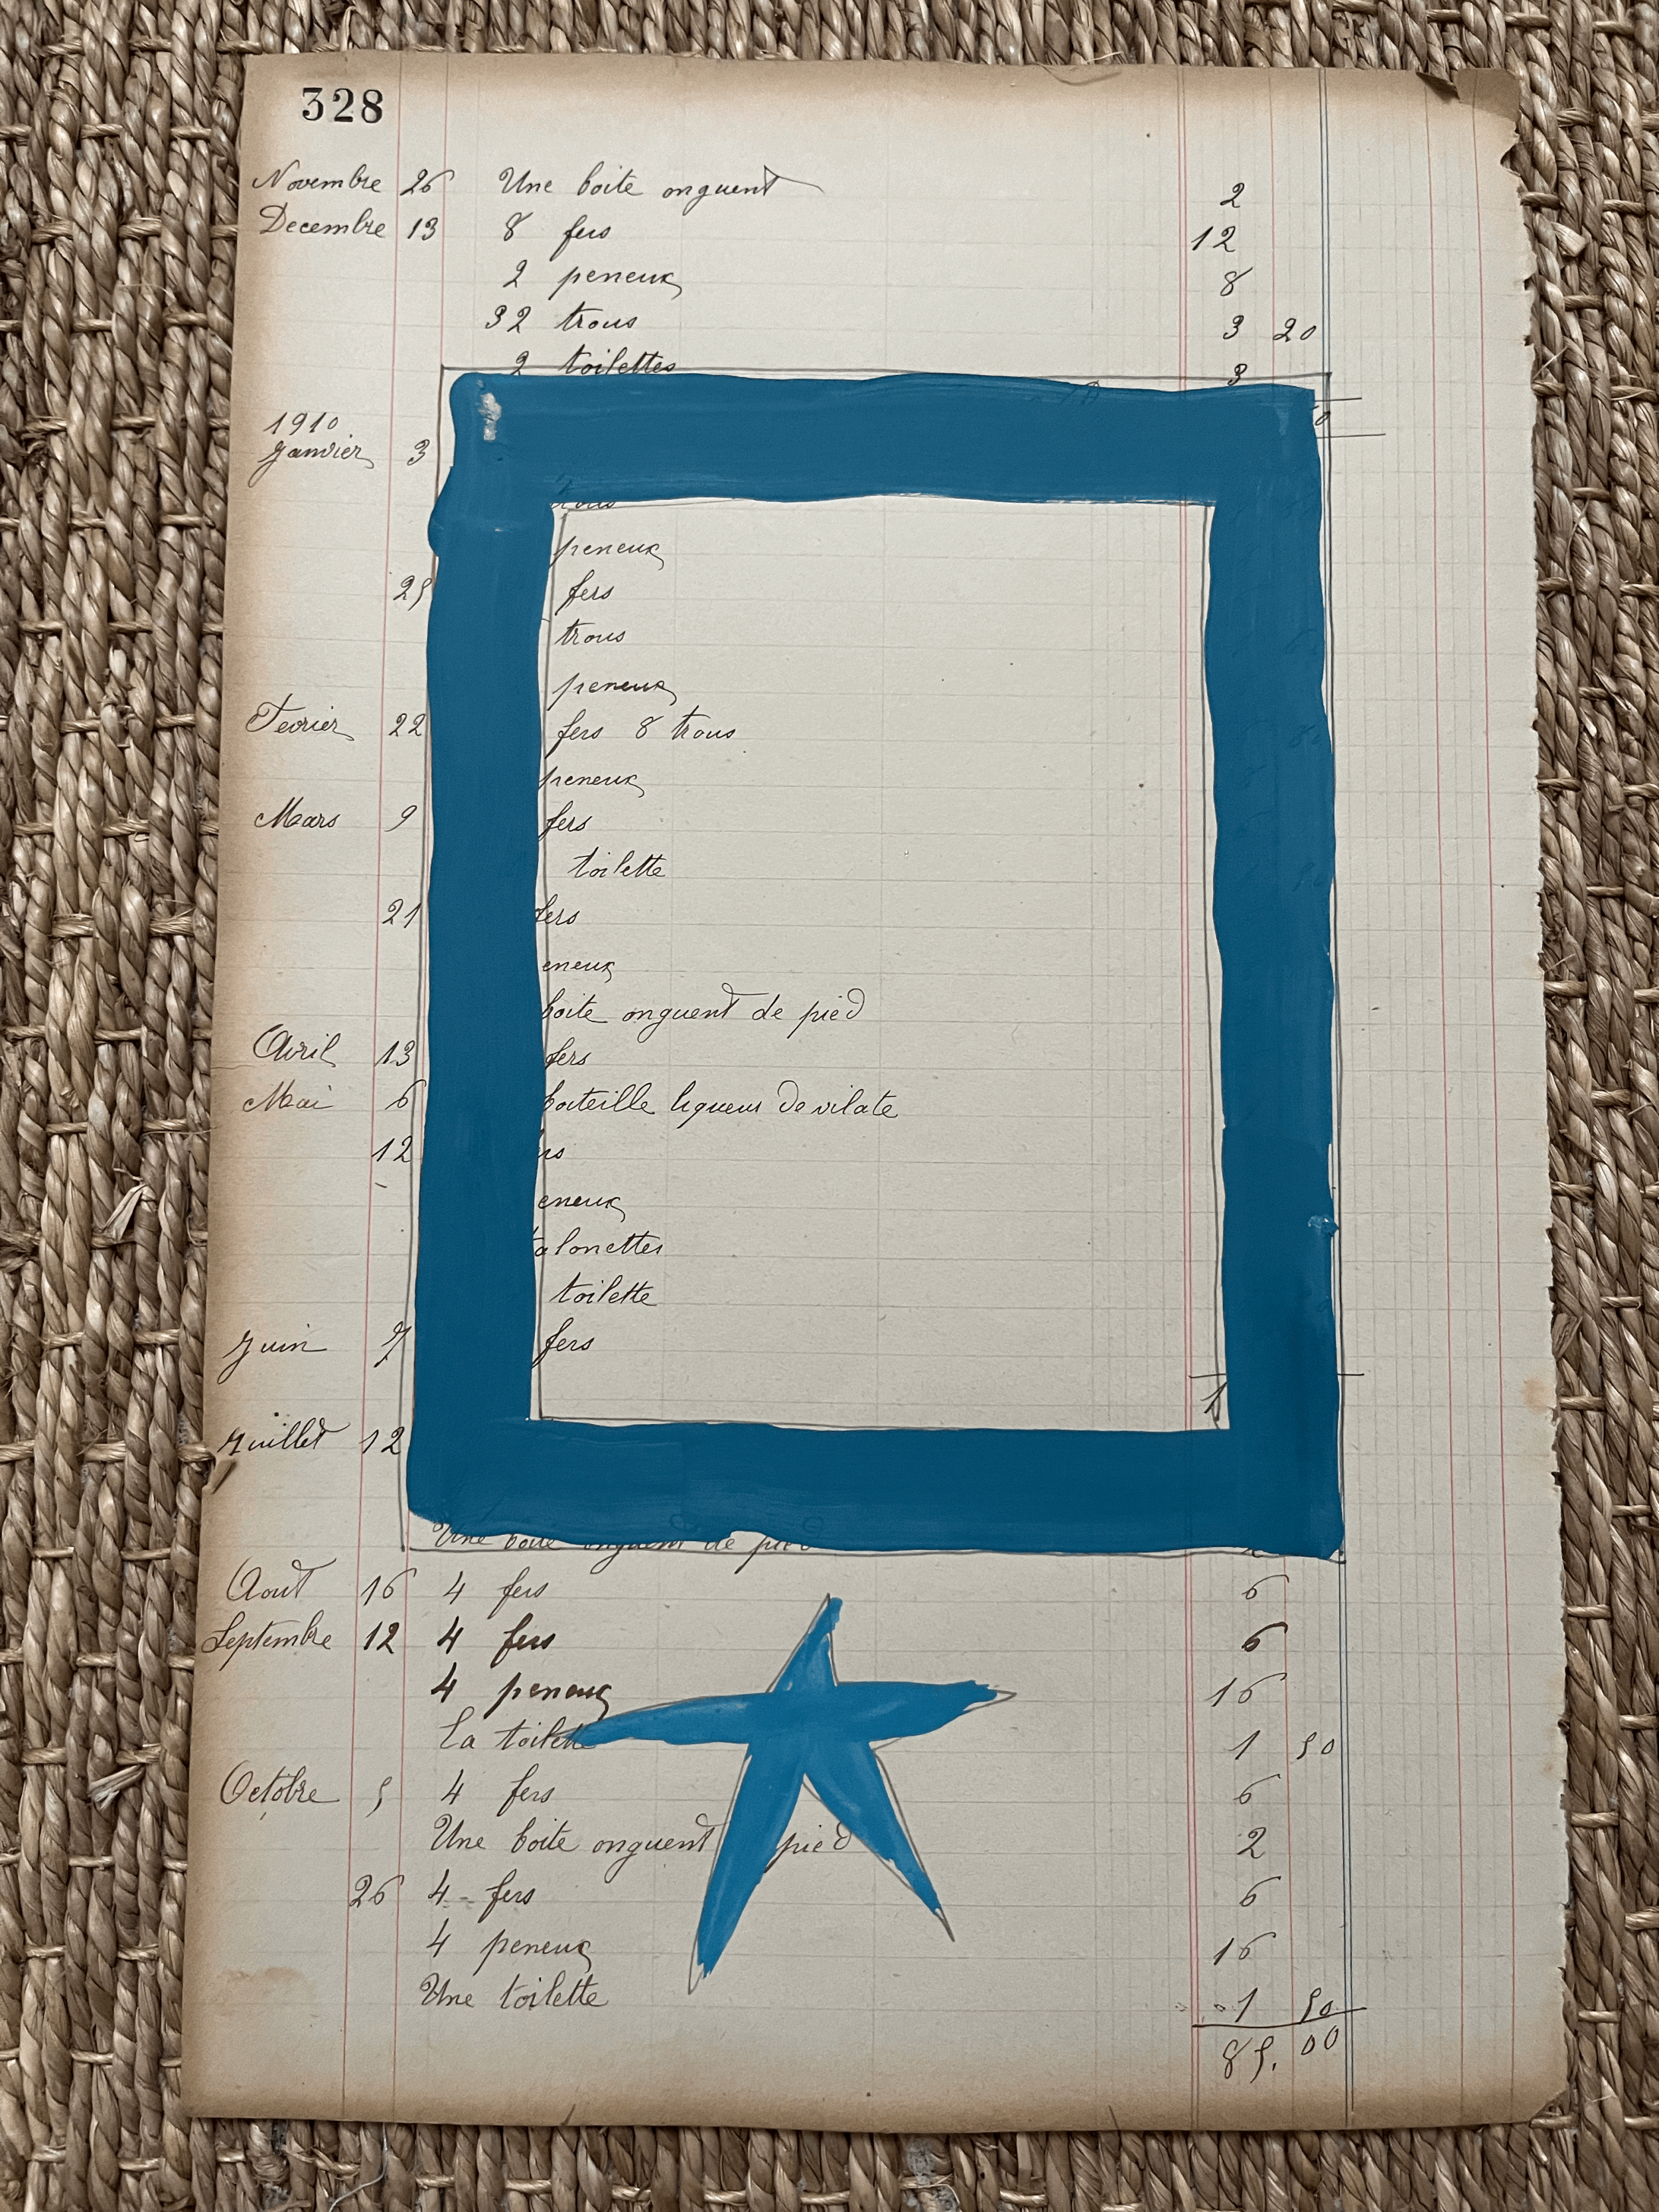 328
Novembre 26 Une boite onguent 2
Decembre 13 8 fers 12
2 peneux 8
32 trous 3 20
2 toilettes 3
1910
Janvier 3
trous
peneux
25 fers
trous
peneux
Fevrier 22 fers 8 trous
peneux
Mars 9 fers
toilette
21 fers
eneux
boite onguent de pied
Avril 13 fers
Mai 6 boiteille liqueur
12
eneux
talonettes
toilette
Juin 7 fers
1
Juillet 12
Une boite onguent de pied
Aout 16 4 fers 6
Septembre 12 4 fers 6
4 peneux 16
La toilette 1 50
Octobre 5 4 fers 6
Une boite onguent pied 2
26 4 fers 6
4 peneux 16
Une toilette 1 50
85.00